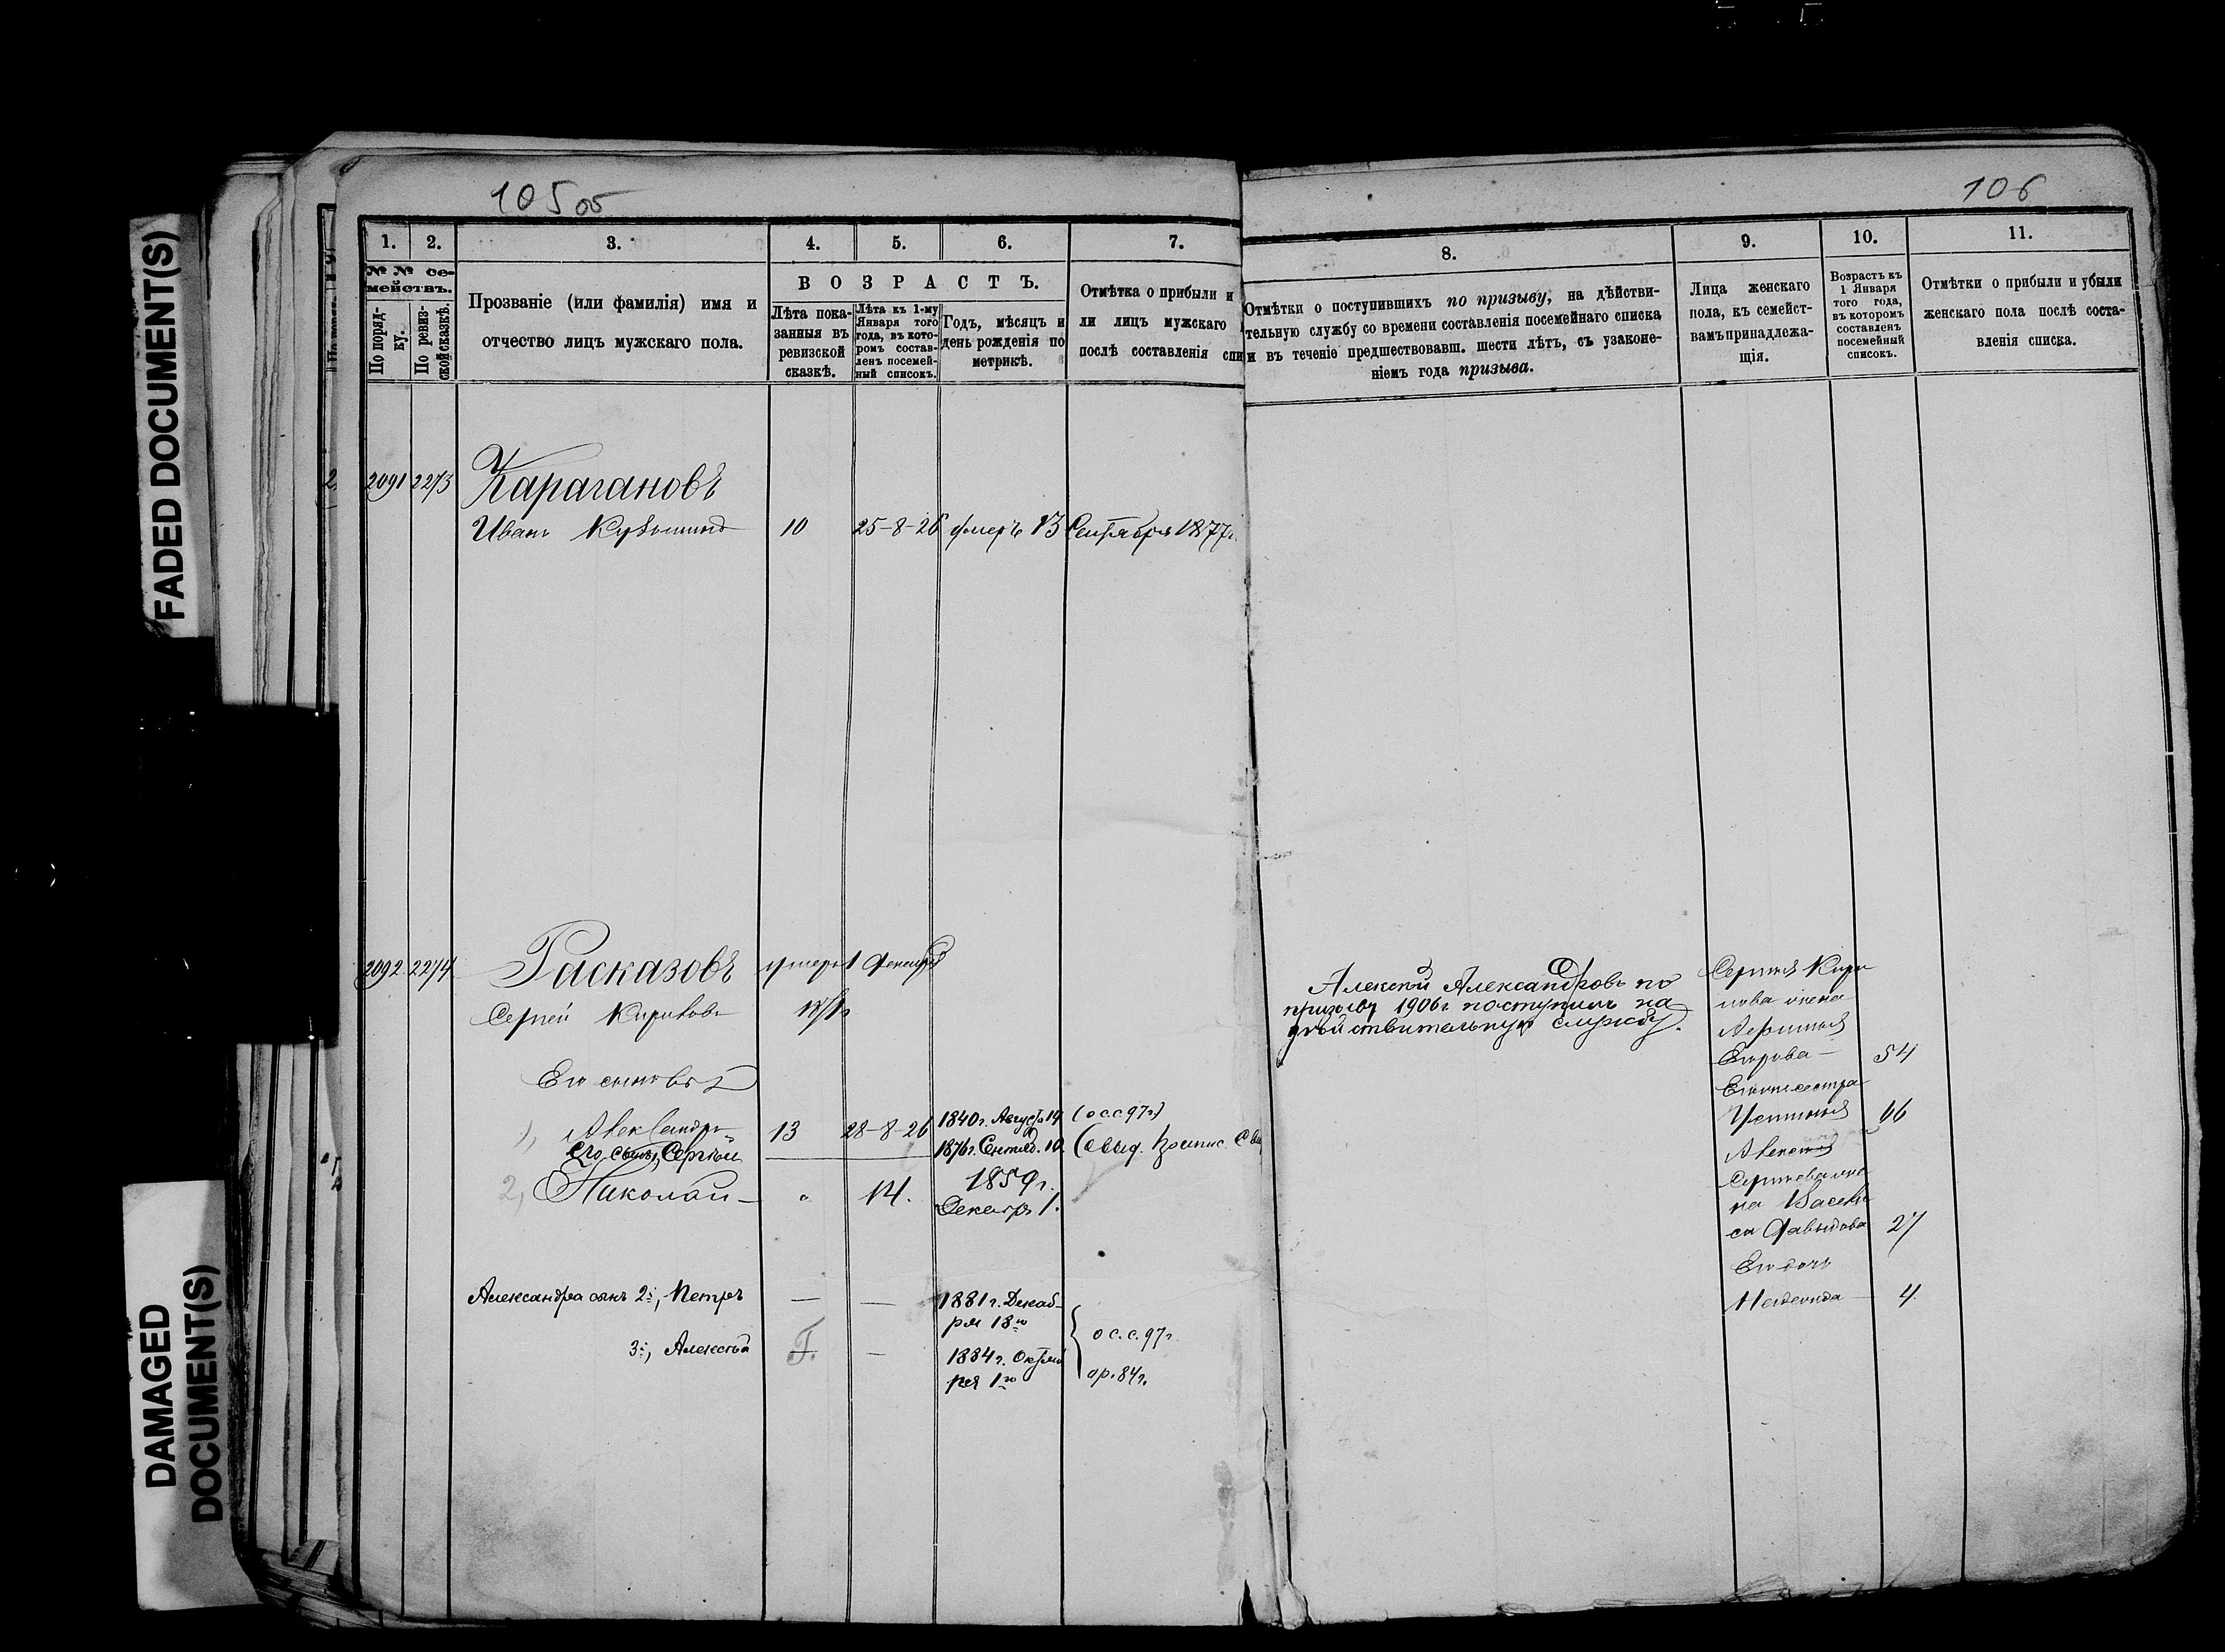 FADED DOCUMENT(S)
DAMAGED
DOCUMENT(S)
105 об
1.
2.
3.
4.
5.
6.
7.
№№ се-
мействъ.
По поряд-
ку.
По ревиз-
ской сказкѣ.
Прозваніе (или фамилія) имя и
отчество лицъ мужскаго пола.
ВОЗРАСТЪ.
Лѣта пока-
занныя въ
ревизской
сказкѣ.
Лѣта къ 1-му
Января того
года, въ кото-
ромъ состав-
ленъ посемей-
ный списокъ.
Годъ, мѣсяцъ и
день рожденія по
метрикѣ.
Отмѣтка о прибыли и
ли лицъ мужскаго
послѣ составленія спи
2091 2273 Караганов
Иванъ 10 25-8-26 умеръ 13 Сентября 1877г.
2092 2274 Расказовъ умеръ
Сергей Кириловъ
Его сыновья
1, Александръ 13 28-8-26 1840г. Август. 19 (о с.с 97г)
Его сынъ, Сергѣй 1876г. Сентяб. 10
2, Николай — " 14. 1859г.
Декабр 1.
Александра сынъ 2й, Петръ — — 1881г. Декаб-
ря 18го
3й, Алексѣй — 1884г. Октяб
ря 1го
о с.с. 97г.
ар. 84г.
106
8.
9.
10.
11.
Отмѣтки о поступившихъ по призыву, на дѣйстви-
тельную службу со времени составленія посемейнаго списка
и въ теченіе предшествовавш. шести лѣтъ, съ узаконе-
ніемъ года призыва.
Лица женскаго
пола, къ семейст-
вамъ принадлежа-
щія.
Возрастъ къ
1 Января
того года,
въ которомъ
составленъ
посемейный
списокъ.
Отмѣтки о прибыли и убыли
женскаго пола послѣ соста-
вленія списка.
Алексѣй Александровъ по
призыву 1906г поступилъ на
дѣйствительную службу.
Сергѣя Кири
лова жена
Егорова — 54
Его же сестра
Устинья 66
Сергѣева же
на Васили
са Давыдова 27
Его дочь
4